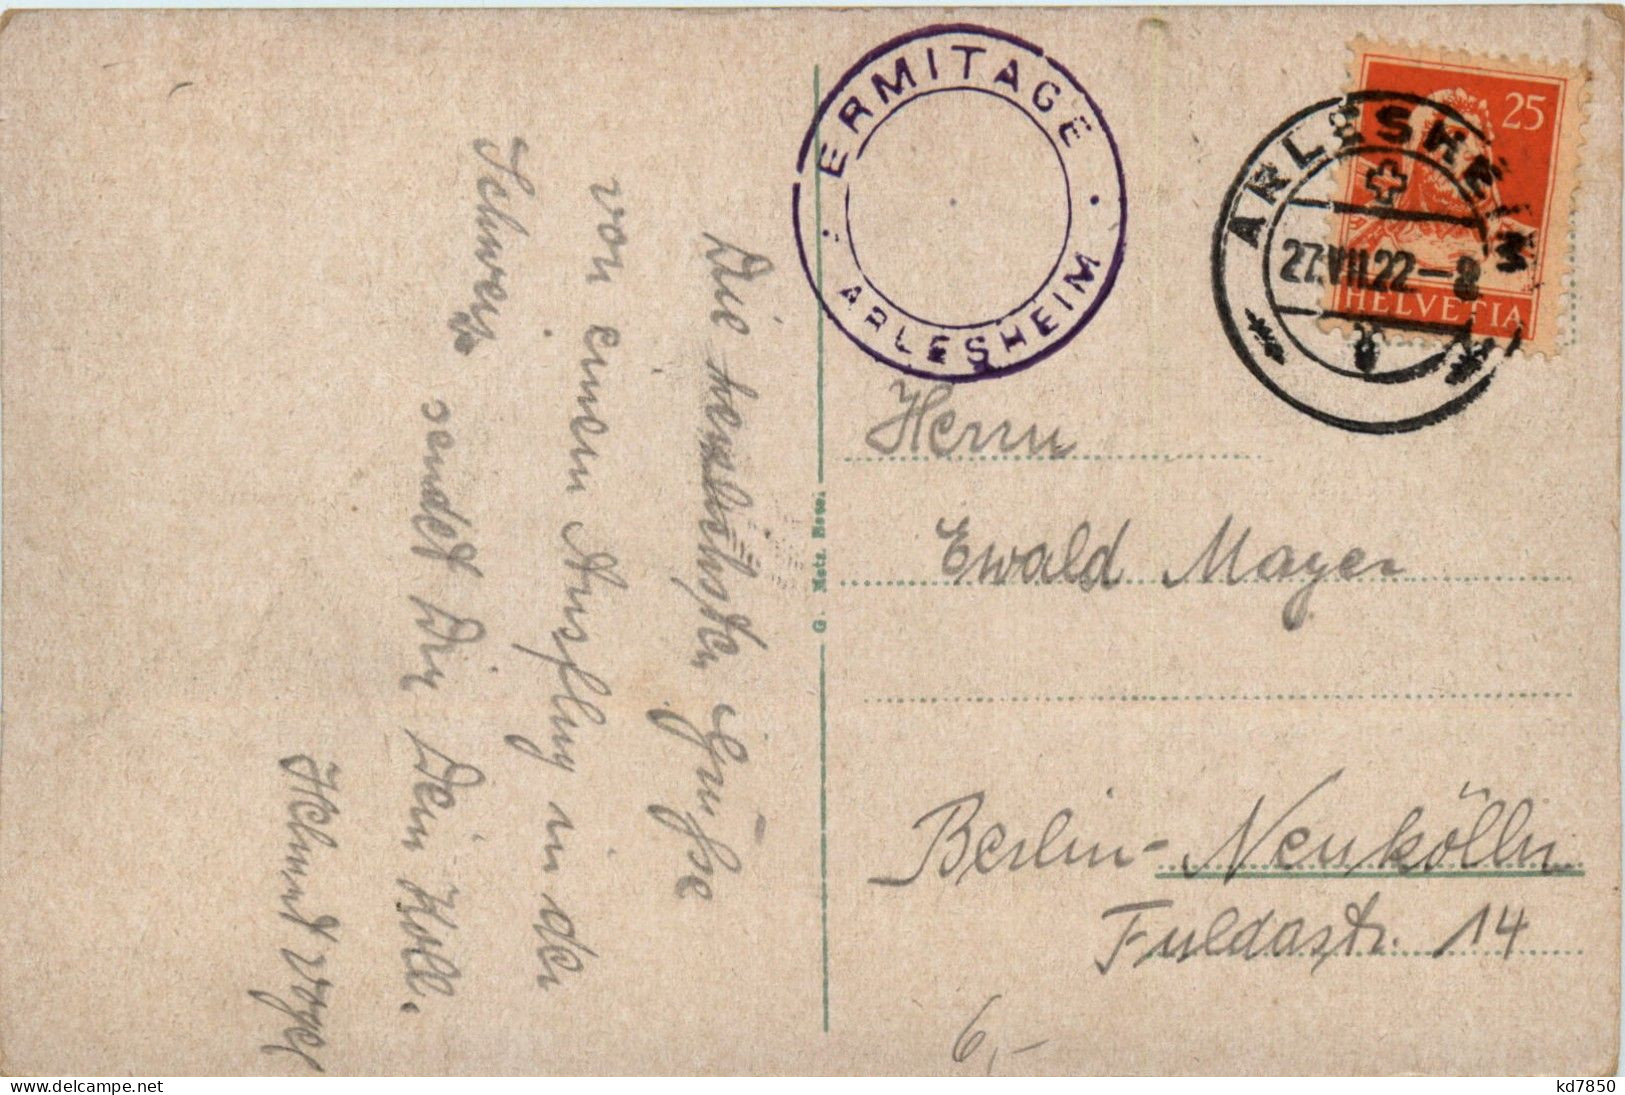 Die herzlichsten Grüße
von einem Ausflug in der
Schweiz
sendet Dir Dein Koll.
Helmut Vogel
G. Metz, Basel
ERMITAGE
ARLESHEIM
25
HELVETIA
ARLESHEIM
27.VII.22-8
Herrn
Ewald Mayer
Berlin-Neukölln
Fuldastr. 14
6,-
delcampe.net
kd7850